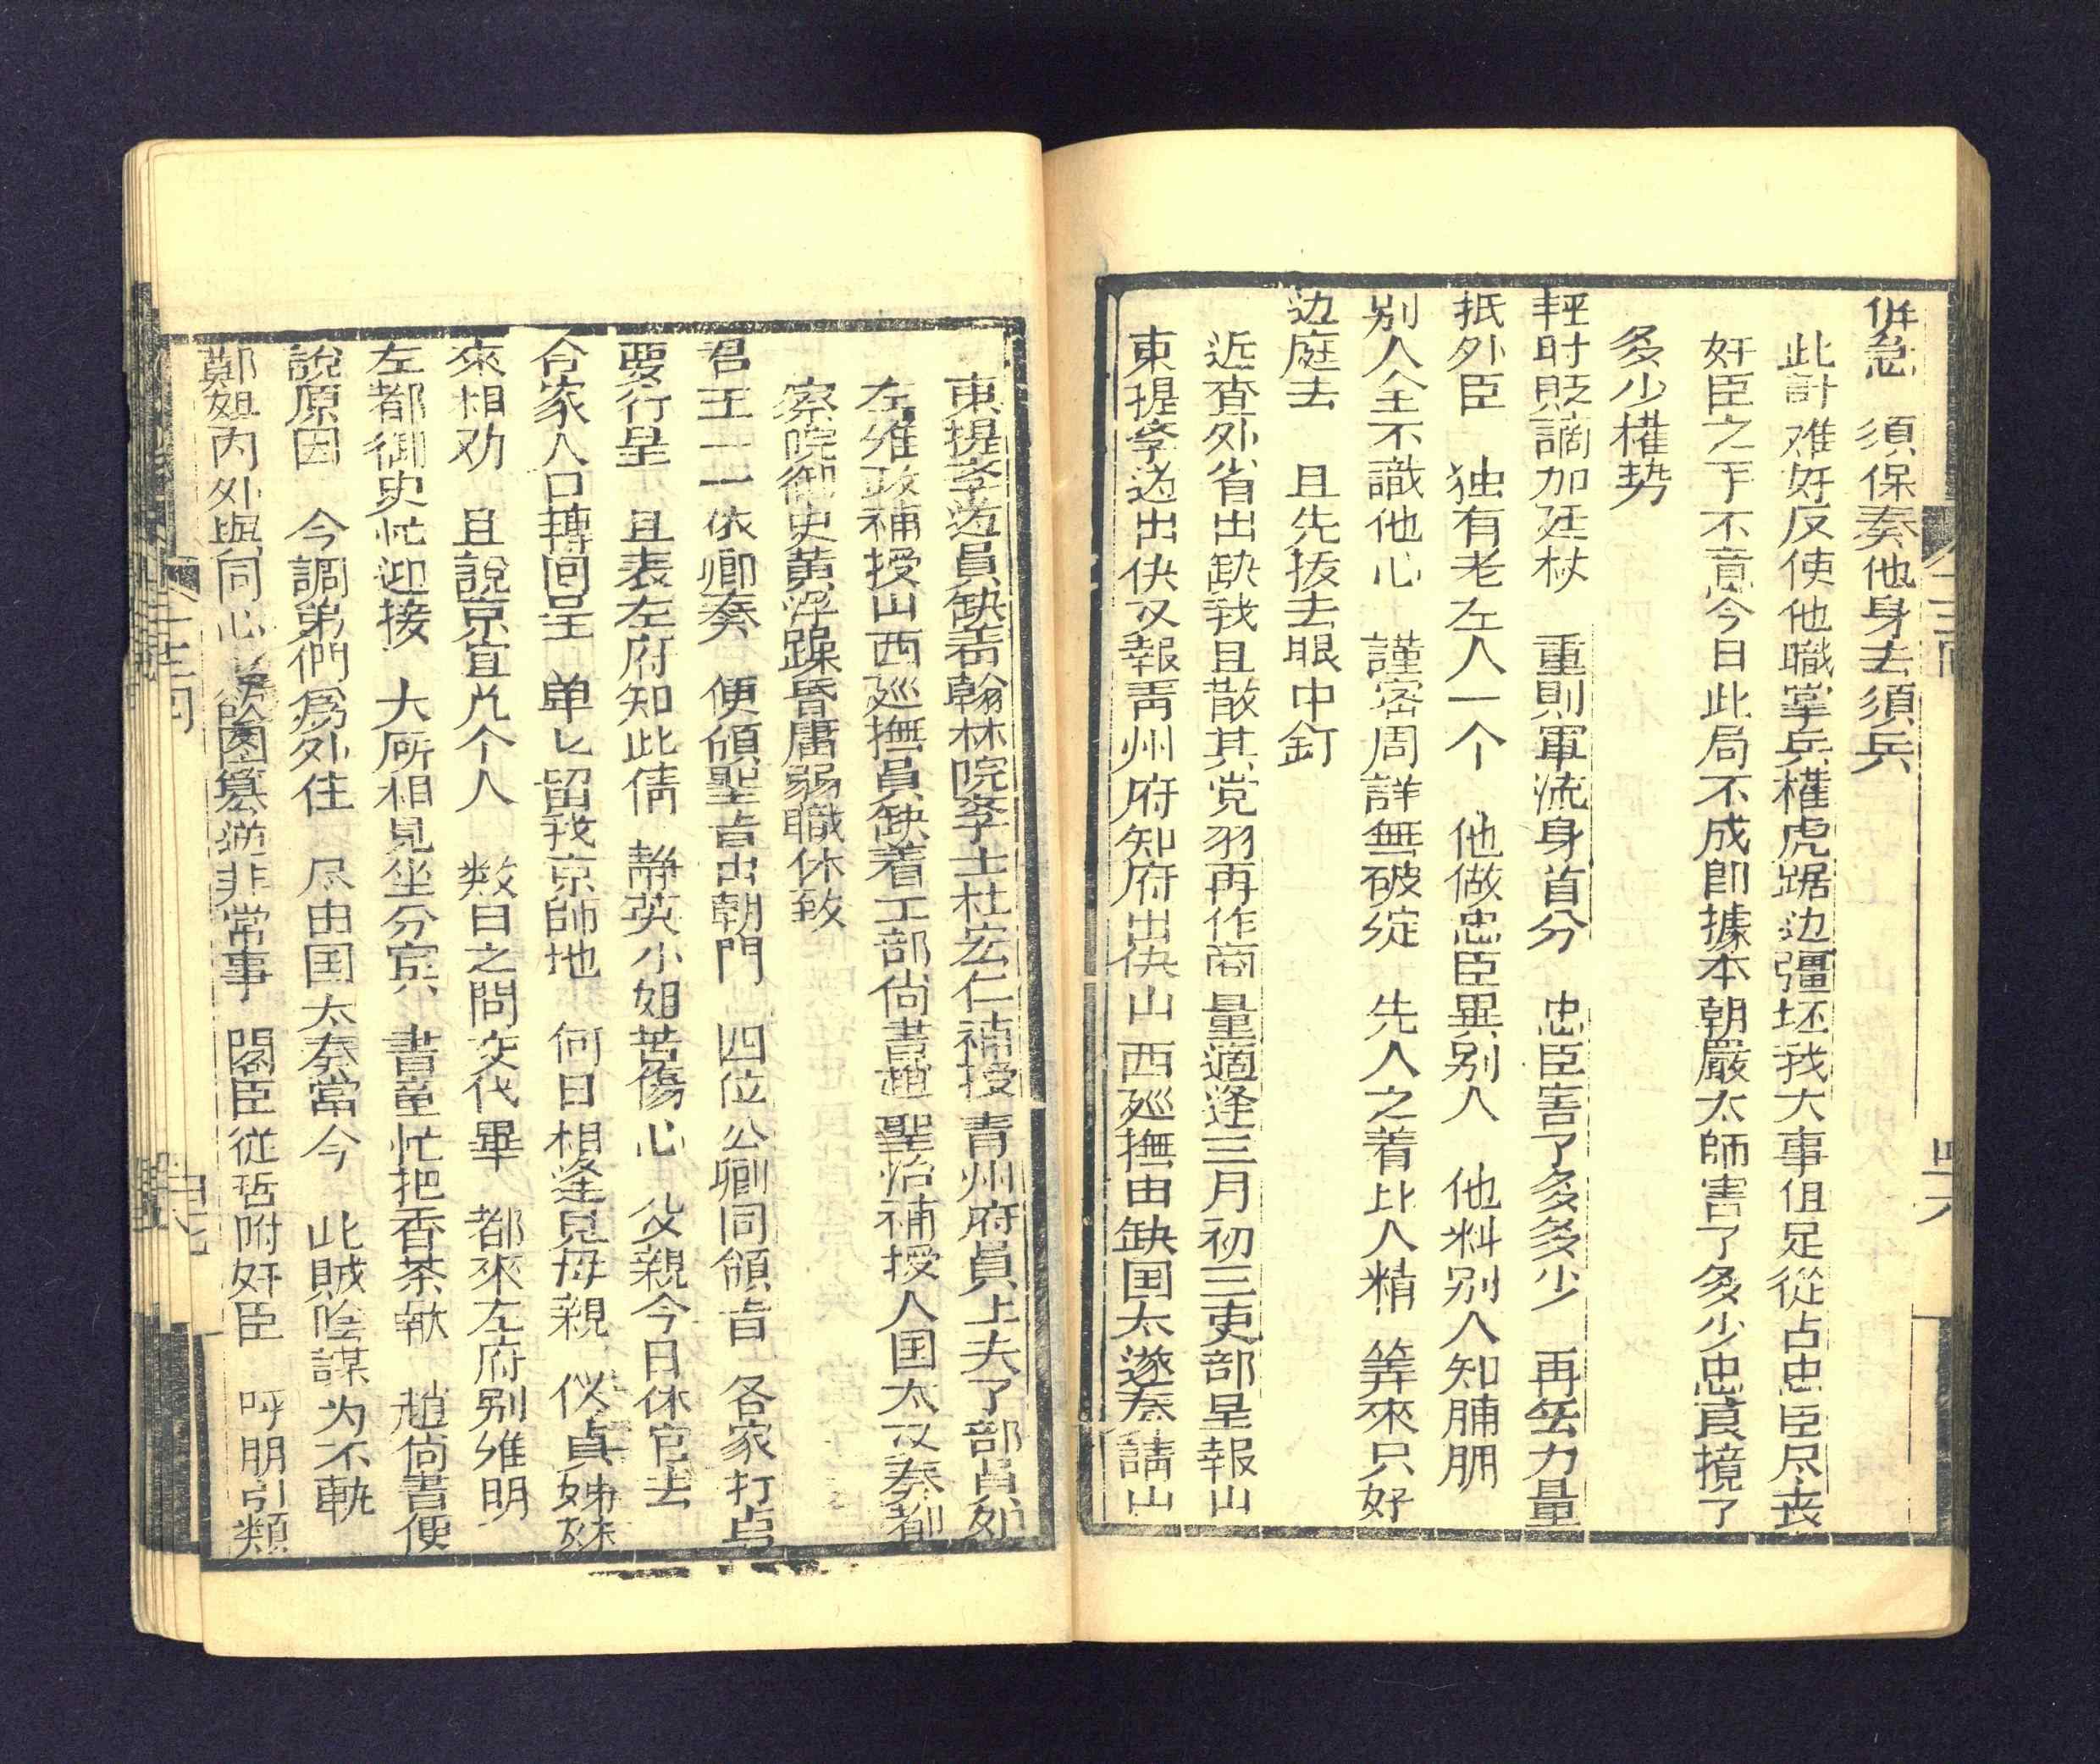 併急　須保奏他身去須兵
此計难好反使他職掌兵權虎踞边彊坯我大事但足從占忠臣尽丧
奸臣之下不意今日此局不成即據本朝嚴太師害了多少忠良攬了
多少權势
輕时貶謫加廷杖　重則軍流身首分　忠臣害了多多少　再丢力量
抵外臣　独有老左人一个　他做忠臣異别人　他料别人知脯朋
别人全不識他心　謹密周詳無破綻　先人之着比人精　筭來只好
边庭去　且先拔去眼中釘
近查外省出缺我且散其党羽再作商量適逢三月初三吏部呈報山
東提李道出伕又報青州府知府出伕山西廵撫由缺囯太遂奏請山
東提李道員缺着翰林院李士杜宏仁補授青州府員上夫了部員外
左维政補授山西廵撫員缺着工部尚書趙聖治補授人国太又奏都
察院御史黄浮躁昏庸弱職休致
君王一一依卿奏　便頒聖旨出朝門　四位公卿同領旨　各家打点
要行呈　且表左府知此情　静英小姐苦傷心　父親今日休官去
合家人口轉回呈　单匕留我京師地　何日相逢見母親　仪貞姊妹
來相劝　且說京宜几个人　数日之間交代畢　都來左府别维明
左都御史忙迎接　大所相見坐分賓　書童忙把香茶献　趙尚書便
說原因　今調弟們爲外任　尽由国太奏當今　此賊陰謀为不軌
鄭姐內外與同心　欲圖篡逆非常事　閣臣從哲附奸臣　呼朋引類